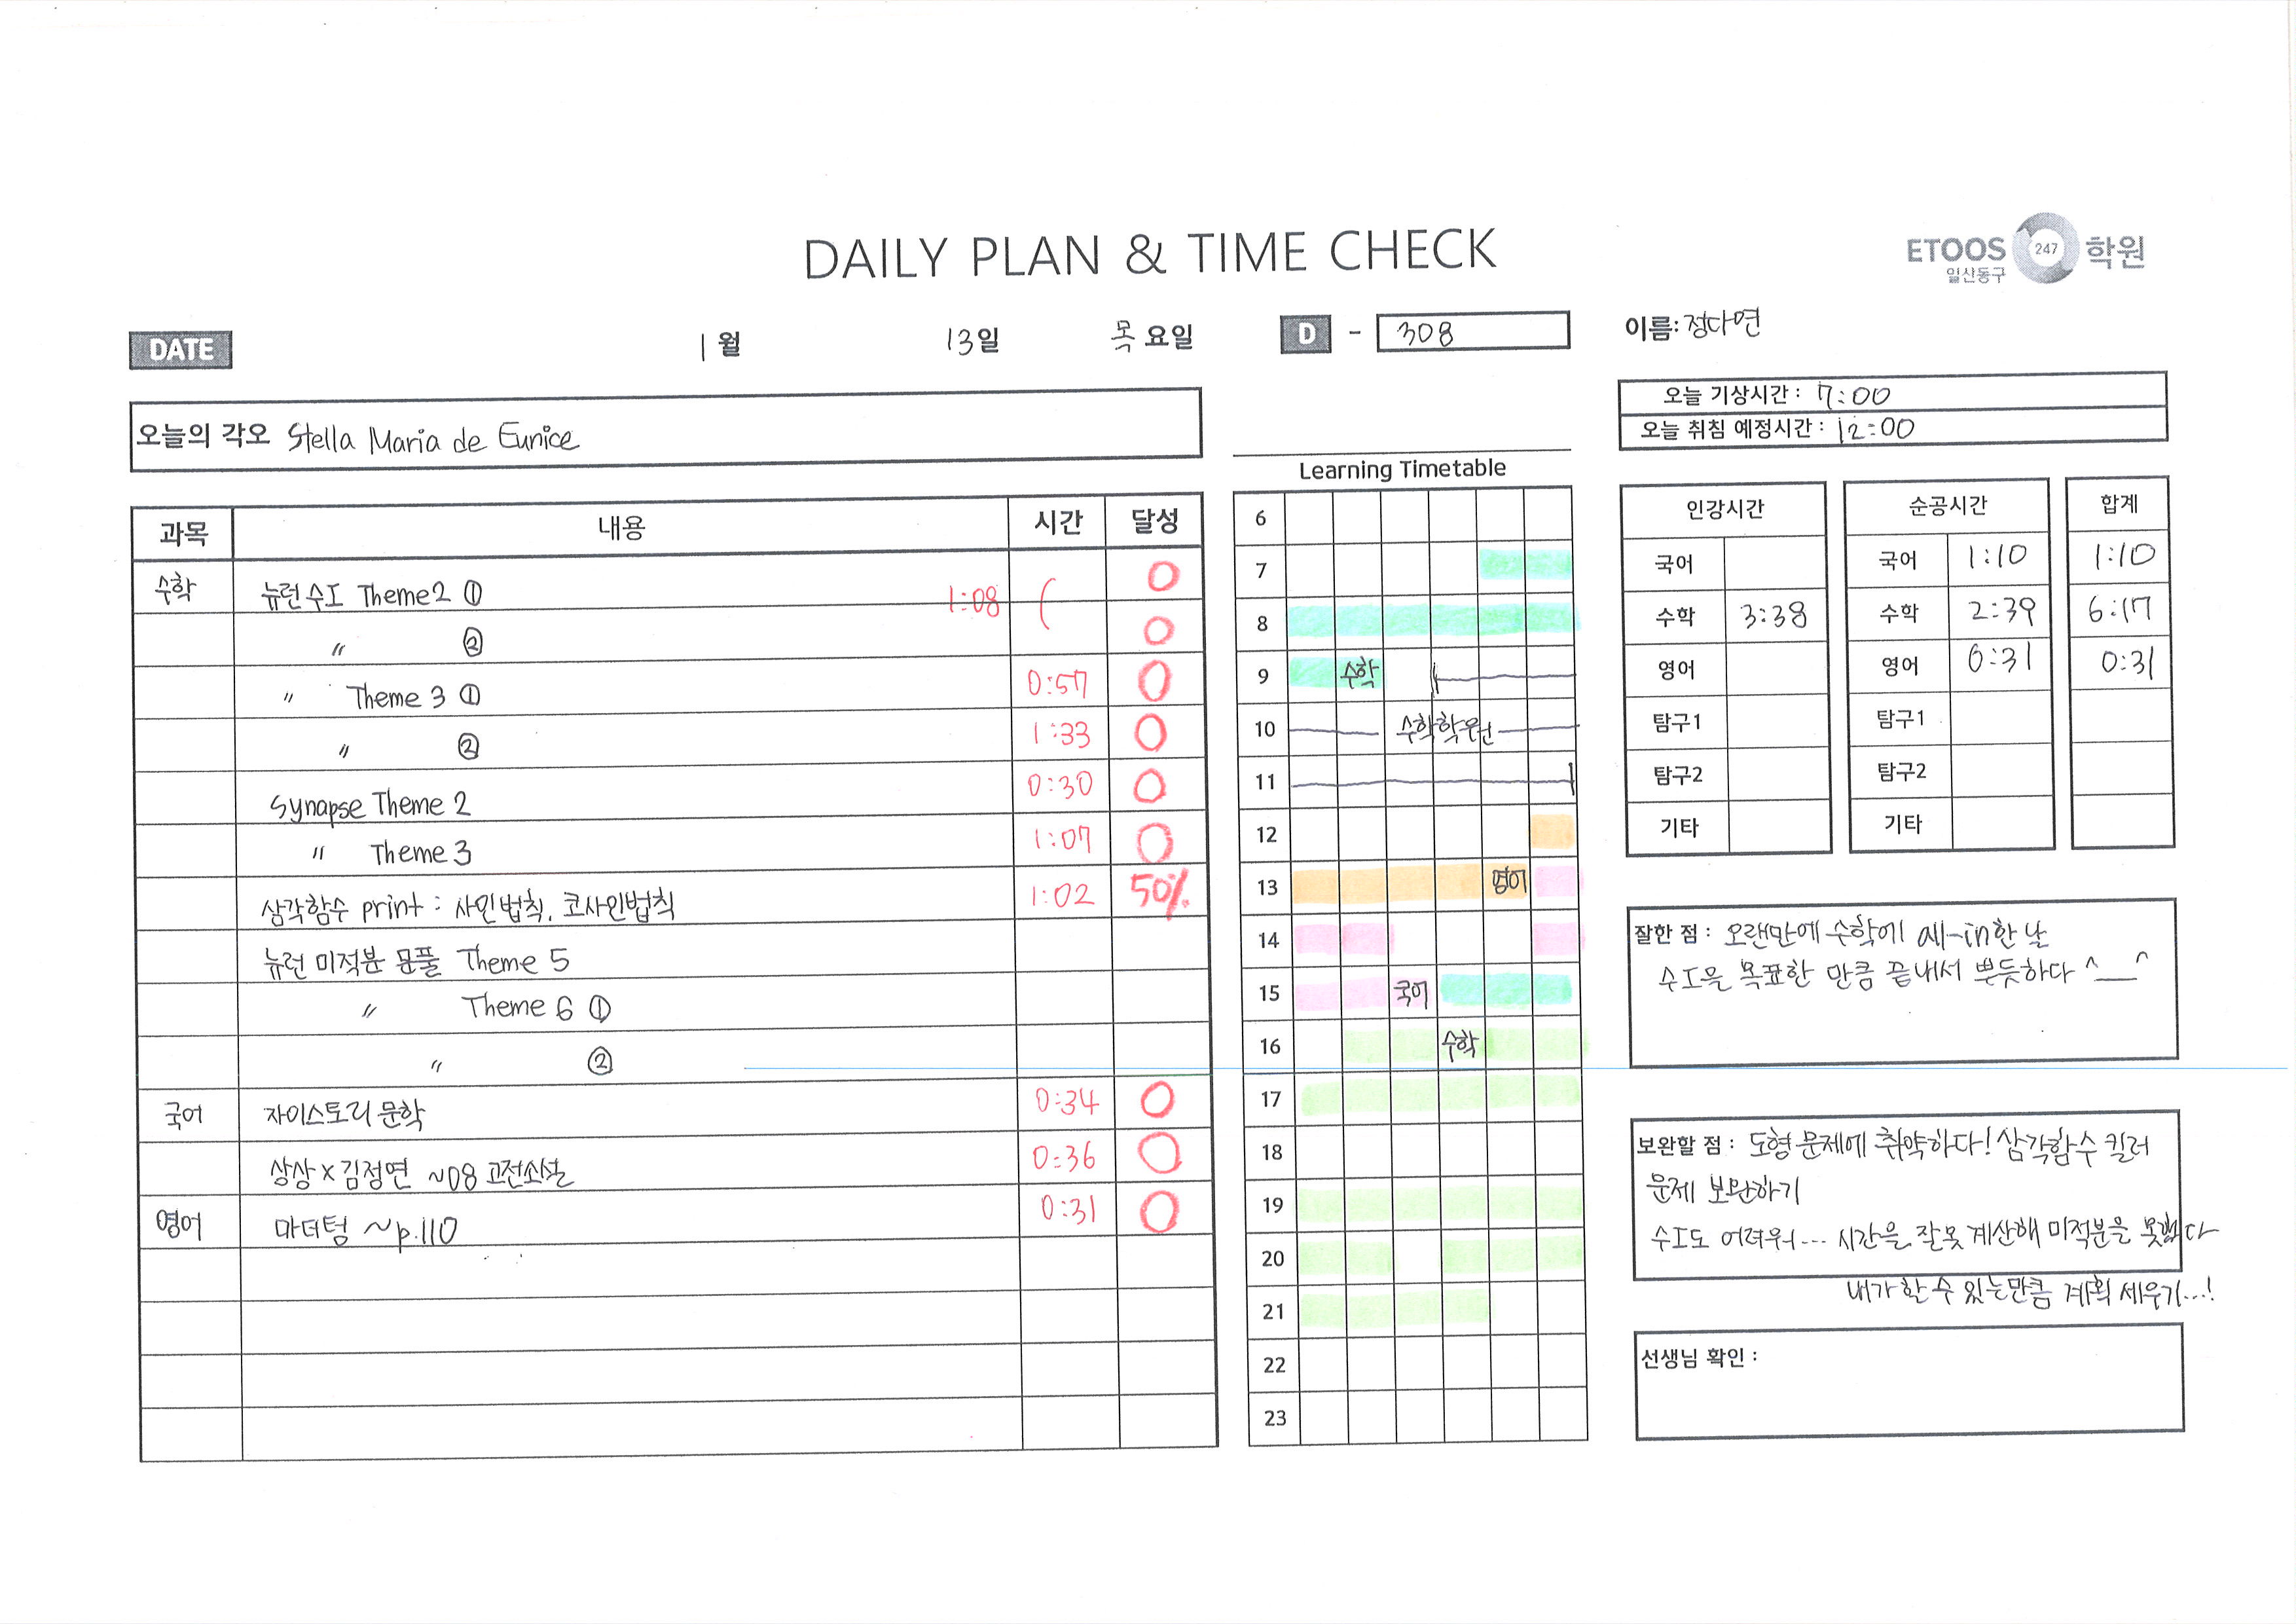 DAILY PLAN & TIME CHECK
ETOOS 247 학원
일산동구
DATE 1월 13일 목요일 D - 308 이름: 정다연
오늘의 각오 Stella Maria de Eunice
오늘 기상시간 : 7:00
오늘 취침 예정시간 : 12:00
과목 내용 시간 달성
수학 뉴런 수I Theme2 ① 1:08 ( O
〃 ② O
〃 Theme 3 ① 0:57 O
〃 ② 1:33 O
Synapse Theme 2 0:30 O
〃 Theme 3 1:07 O
삼각함수 print : 사인법칙, 코사인법칙 1:02 50%
뉴런 미적분 문풀 Theme 5
〃 Theme 6 ①
〃 ②
국어 자이스토리 문학 0:34 O
상상×김정연 ~08 고전소설 0:36 O
영어 마더텅 ~p.110 0:31 O
Learning Timetable
6
7
8
9 수학
10 수학학원
11
12
13 영어
14
15 국어
16 수학
17
18
19
20
21
22
23
인강시간 순공시간 합계
국어 국어 1:10 1:10
수학 3:38 수학 2:39 6:17
영어 영어 0:31 0:31
탐구1 탐구1
탐구2 탐구2
기타 기타
잘한 점 : 오랜만에 수학에 all-in한 날
수I을 목표한 만큼 끝내서 뿌듯하다 ^__^
보완할 점 : 도형 문제에 취약하다! 삼각함수 킬러
문제 보완하기
수I도 어려워... 시간을 잘못 계산해 미적분을 못했다
내가 할 수 있는만큼 계획 세우기...!
선생님 확인 :